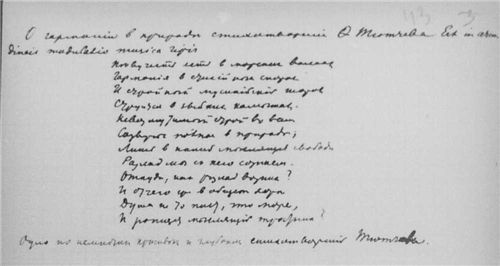 О гармоніи в природѣ стихотвореніе Ѳ Тютчева Est in arun
dineis modulatio musica ripis
Пѣвучесть есть в морских волнах
Гармонія в стихійном спорѣ
И стройный мусикійскій шорох
Струится в зыбких камышах.
Невозмутимый строй во всем
Созвучье полное в природѣ;
Лишь в нашей свободѣ
Разлад мы с нею сознаем.
Откуда, как разлад возник?
И отчего же в общем хорѣ
Душа не то поет, что море,
И ропщет мыслящій тростник?
Одно из и глубоких стихотвореній Тютчева.